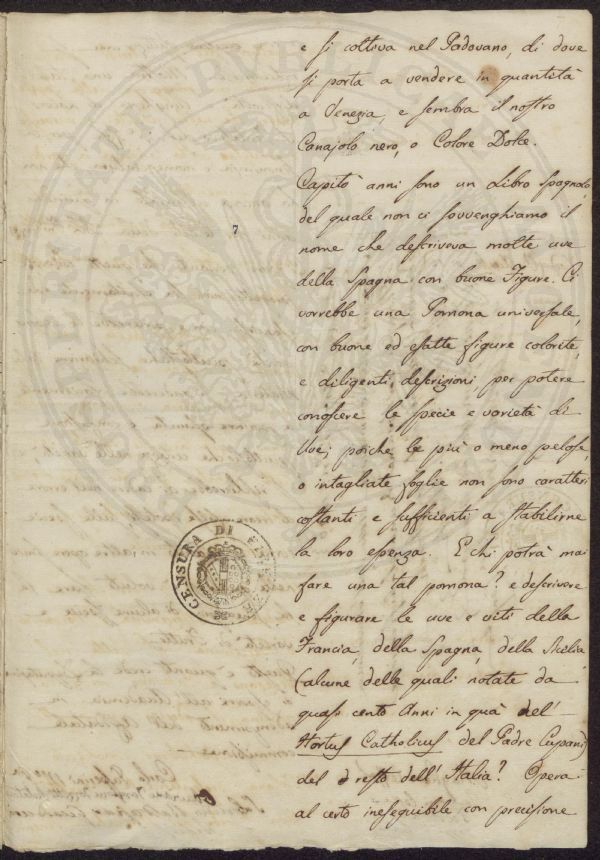 e si coltiva nel Padovano, di dove
si porta a vendere in quantità
a Venezia, e sembra il nostro
Canajolo nero, o Colore Dolce.
Capitò anni sono un Libro Spagnolo,
del quale non ci sovvenghiamo il
7
nome che descriveva molte uve
della Spagna con buone Figure. Ci
vorrebbe una Pomona universale,
con buone ed esatte figure colorite,
e diligenti descrizioni, per potere
conoscere le specie e varietà di
Uve; poiche le più o meno pelose,
o intagliate foglie non sono caratteri
costanti e sufficienti a stabilirne
la loro essenza. E chi potrà mai
fare una tal pomona? e descrivere
e figurare le uve e viti della
Francia, della Spagna, della Sicilia
(alcune delle quali notate da
quasi cento Anni in quà nel'
Hortus Catholicus del Padre Cupani)
del resto dell' Italia? Opera
al certo ineseguibile con precisione
CENSURA DI